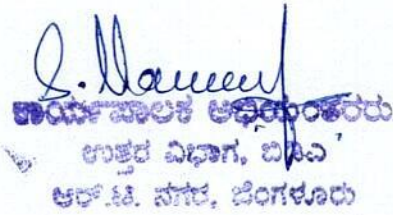 ಕಾರ್ಯಪಾಲಕ ಅಭಿಯಂತರರು
ಉತ್ತರ ವಿಭಾಗ, ಬಿ.ಡಿ.ಎ
ಆರ್.ಟಿ. ನಗರ, ಬೆಂಗಳೂರು